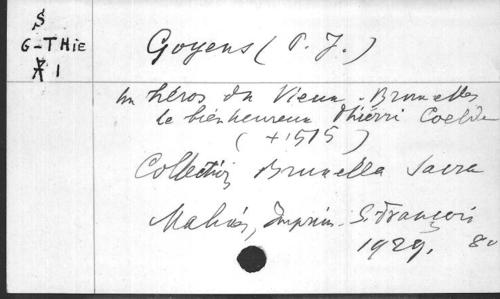 S
G-THie
1
Goyens (P. J.)
Un héros du Vieux-Bruxelles
le bienheureux Thierri Coelde
(+1515)
Collection Bruxella Sacra
Malines, Imprim. S. François
1929. 8º